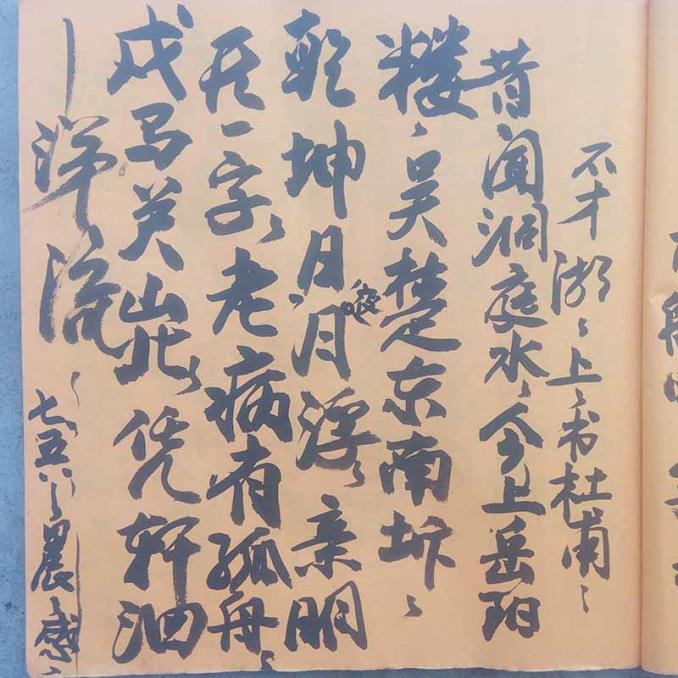 不才游、上、书杜甫、
昔闻洞庭水、今上岳阳
楼、吴楚东南坼、
乾坤日月夜浮、亲朋
无一字、老病有孤舟、
戎马关山北、凭轩泗
涕流、
七五八、晨、感、